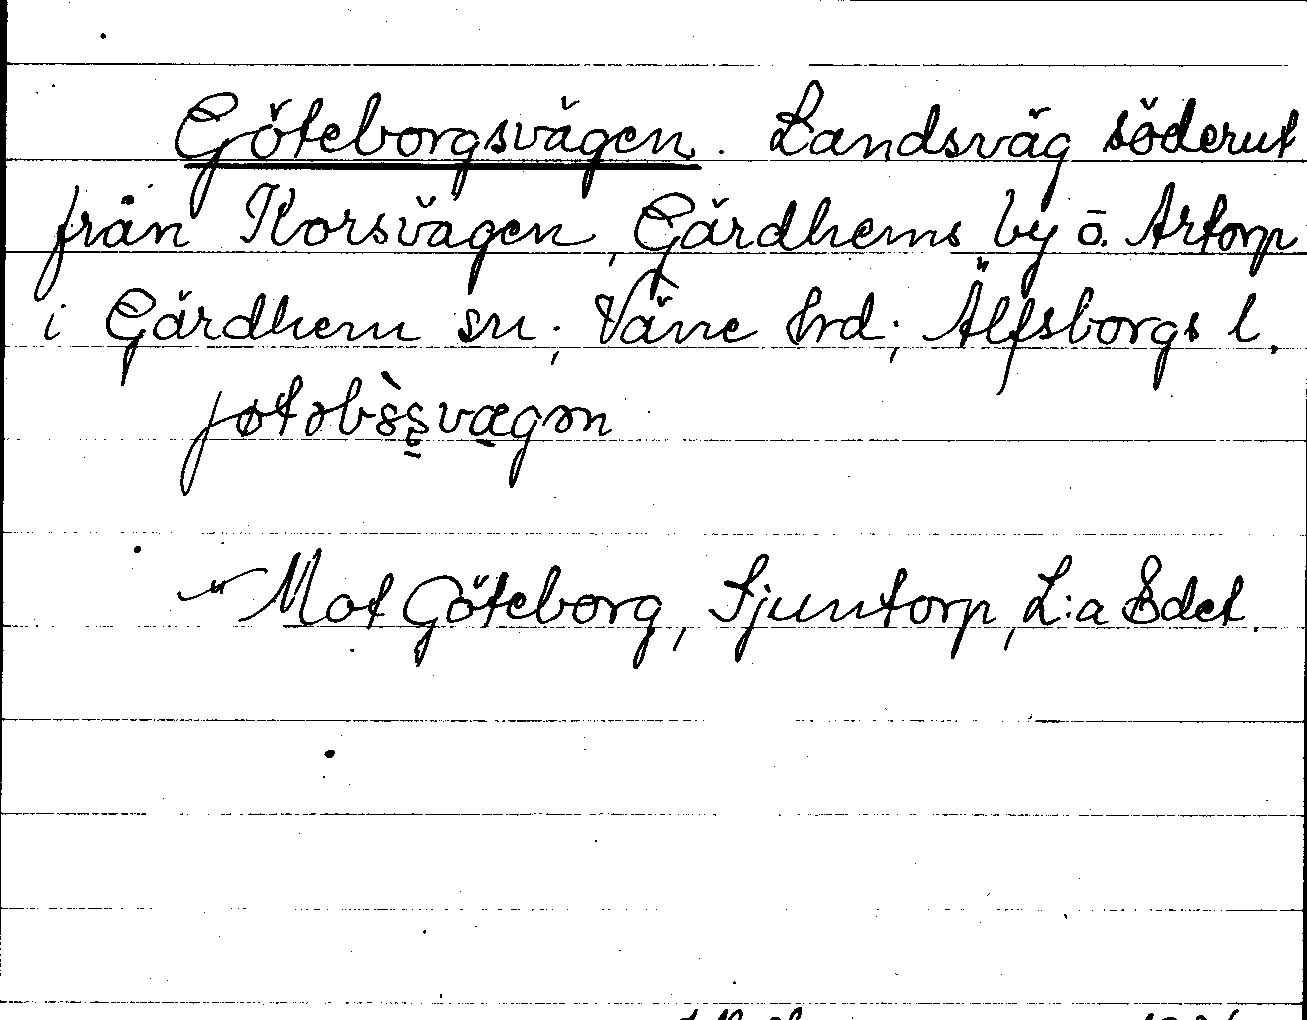 Göteborgsvägen. Landsväg söderut
från Korsvägen, Gärdhems by o. Artorp
i Gärdhem sn; Väne hrd; Älfsborgs l.
Mot Göteborg, Sjuntorp, L:a Edet.